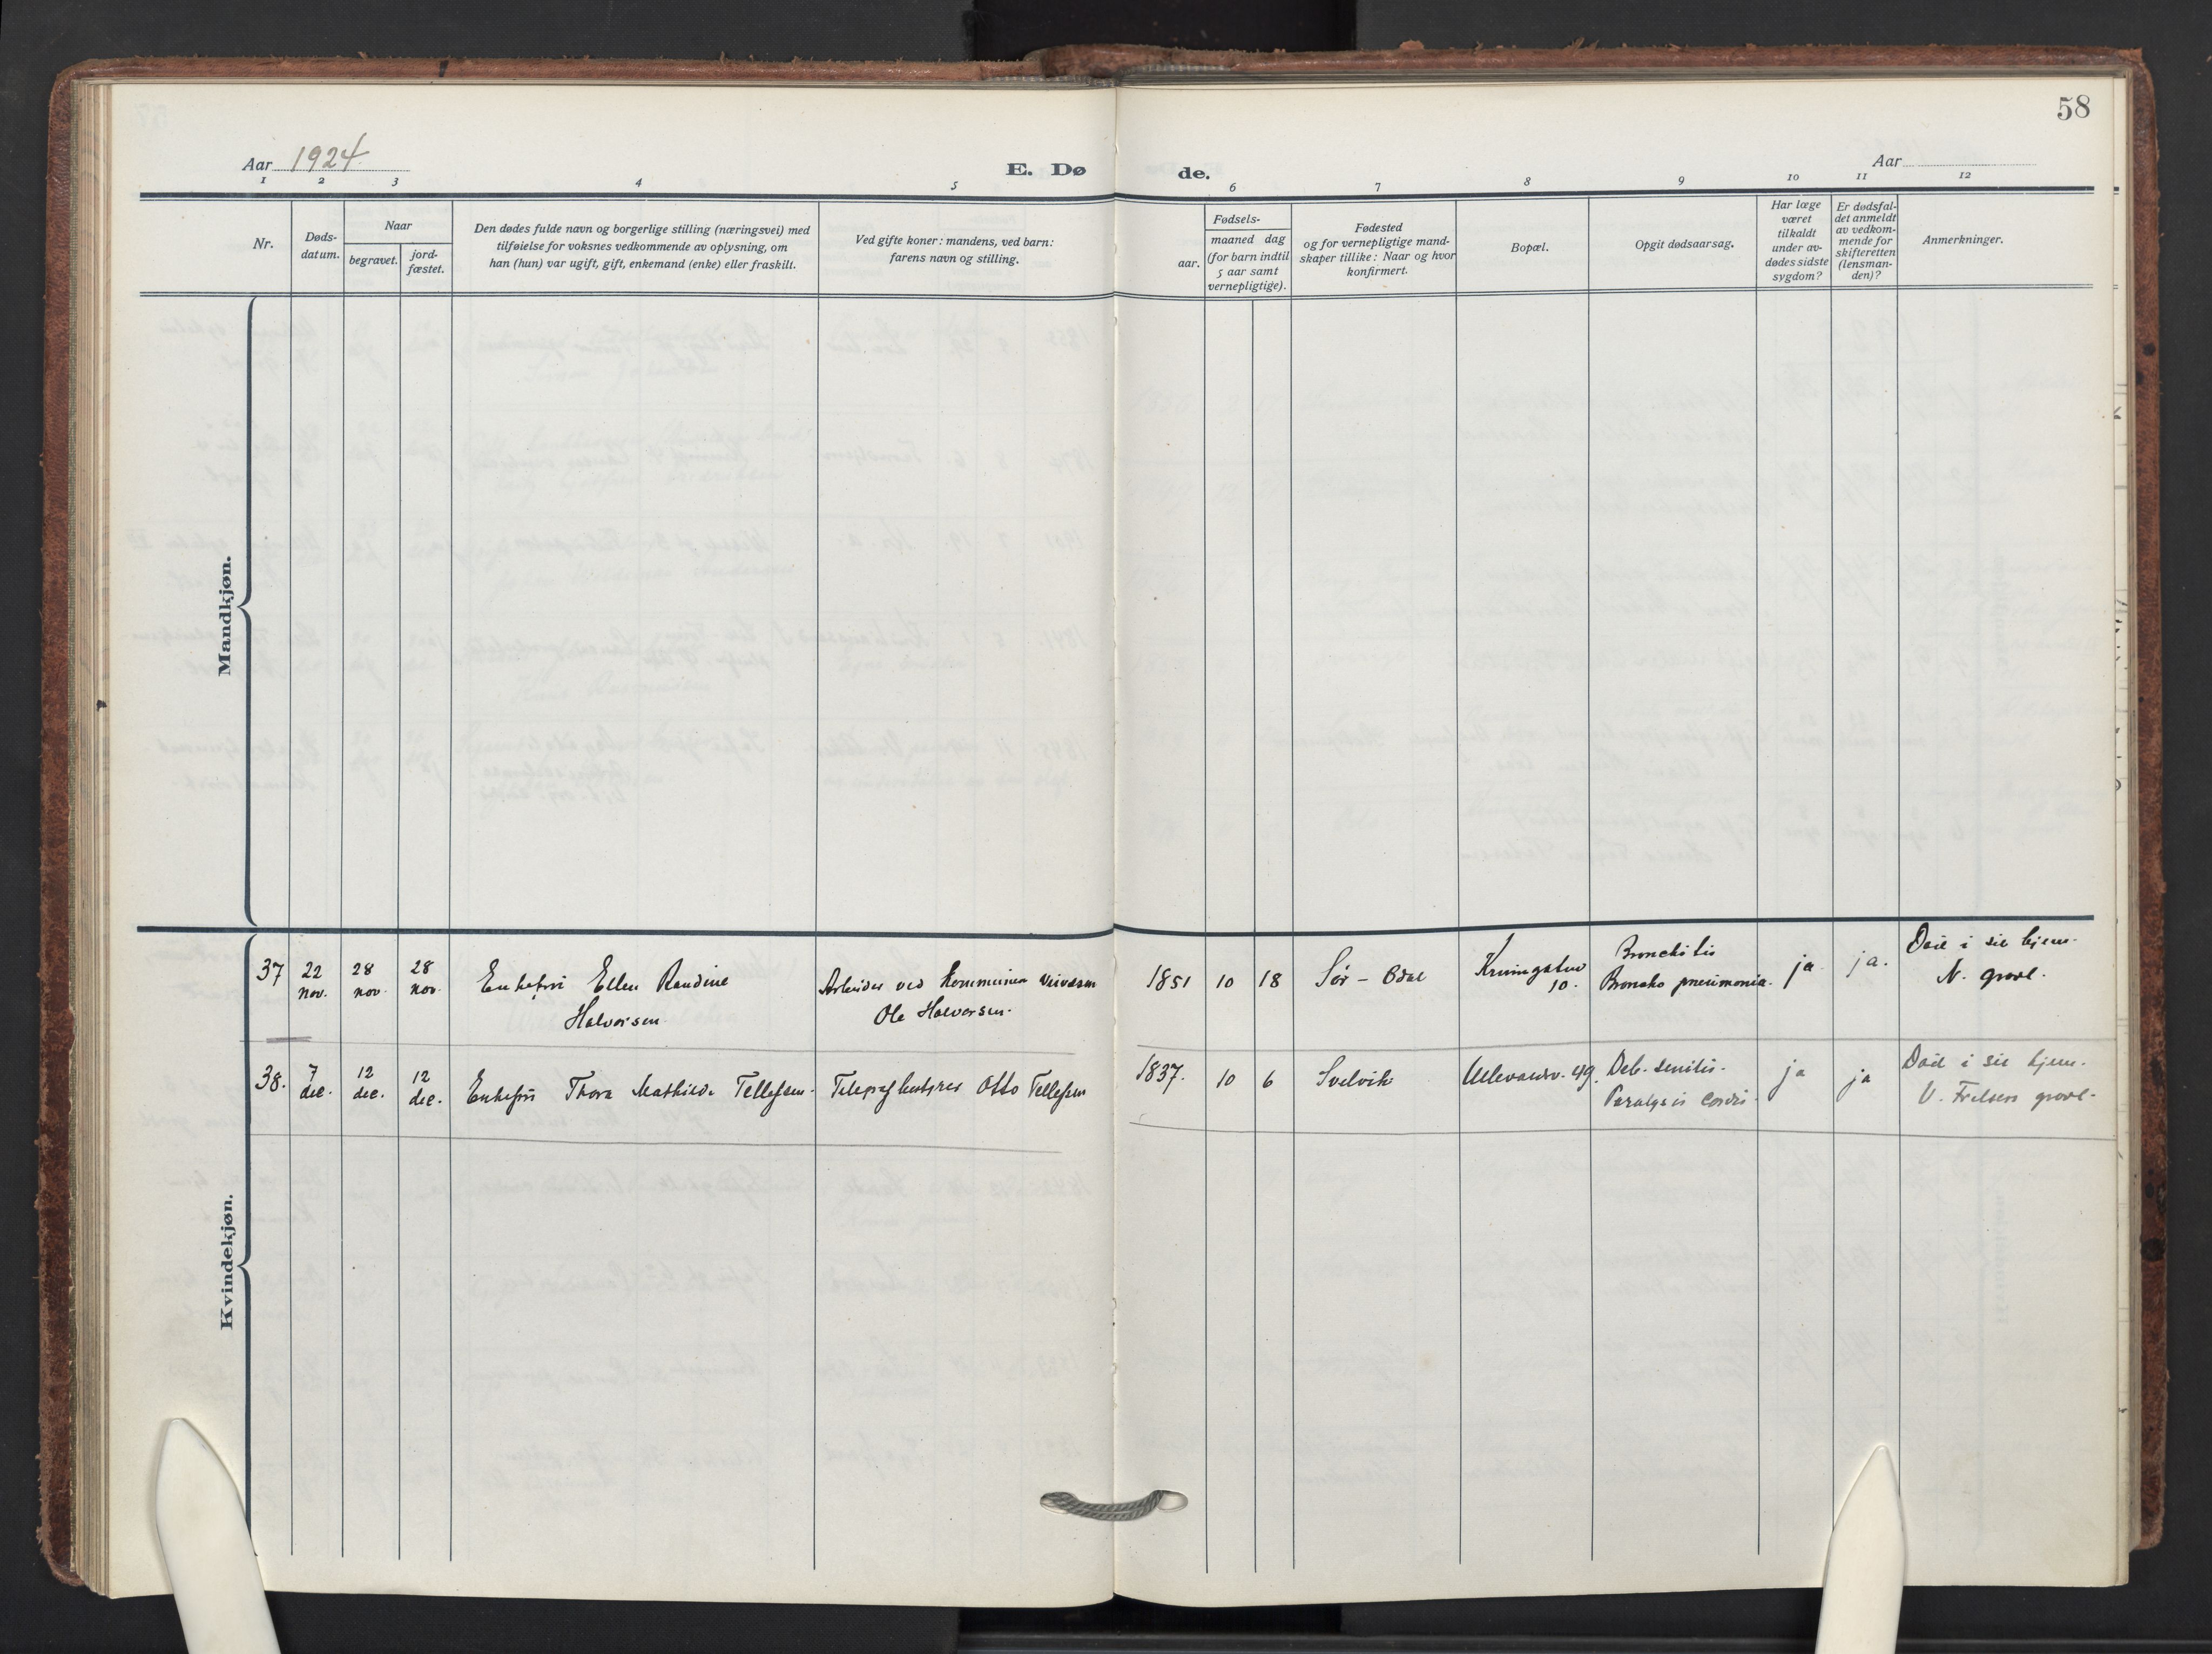 58
Aar 1924
E. Dø
de.
Aar
1 2 3 4 5 6 7 8 9 10 11 12
Nr.
Døds-
datum.
Naar
begravet.
jord-
fæstet.
Den dødes fulde navn og borgerlige stilling (næringsvei) med
tilføielse for voksnes vedkommende av oplysning, om
han (hun) var ugift, gift, enkemand (enke) eller fraskilt.
Ved gifte koner: mandens, ved barn:
farens navn og stilling.
aar.
Fødsels-
maaned dag
(for barn indtil
5 aar samt
vernepligtige).
Fødested
og for vernepligtige mand-
skaper tillike: Naar og hvor
konfirmert.
Bopæl.
Opgit dødsaarsag.
Har læge
været
tilkaldt
under av-
dødes sidste
sygdom?
Er dødsfal-
det anmeldt
av vedkom-
mende for
skifteretten
(lensman-
den)?
Anmerkninger.
Mandkjøn.
Kvindekjøn.
37
22
nov.
28
nov.
28
nov.
Enkefru Ellen Randine
Halvorsen
Arbeider ved Kommunen
Ole Halvorsen.
1851 10 18
Sør-Odal
10.
Bronchitis
Broncho pneumonia.
ja
ja.
Død i sit hjem.
N. gravl.
38.
7
dec.
12
dec.
12
dec.
Enkefru Thora Mathilde Tellefsen.
Otto Tellefsen
1837. 10 6
Svelvik
Ullevoldsv. 49.
Deb. senilis.
Paralysis cordis.
ja
ja
Død i sit hjem.
V. Frelsers gravl.